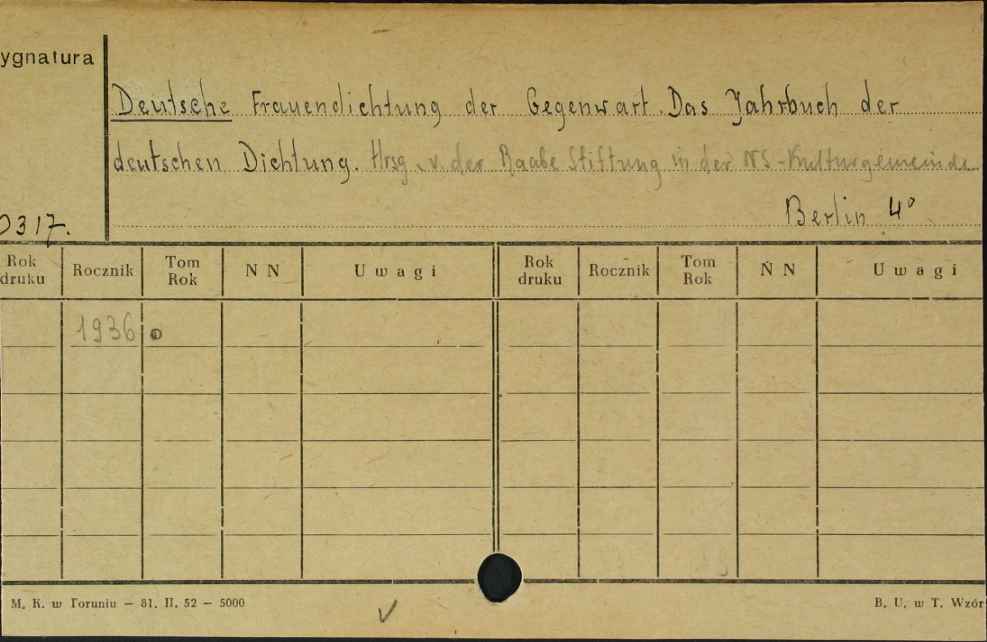 ygnatura
Deutsche Frauendichtung der Gegenwart. Das Jahrbuch der
deutschen Dichtung. Hrsg. v. der Raabe Stiftung in der NS-Kulturgemeinde
Berlin 4°
0317.
Rok druku Rocznik Tom Rok N N Uwagi Rok druku Rocznik Tom Rok N N Uwagi
1936
M. K. w Toruniu — 81. II. 52 — 5000
B. U. w T. Wzór